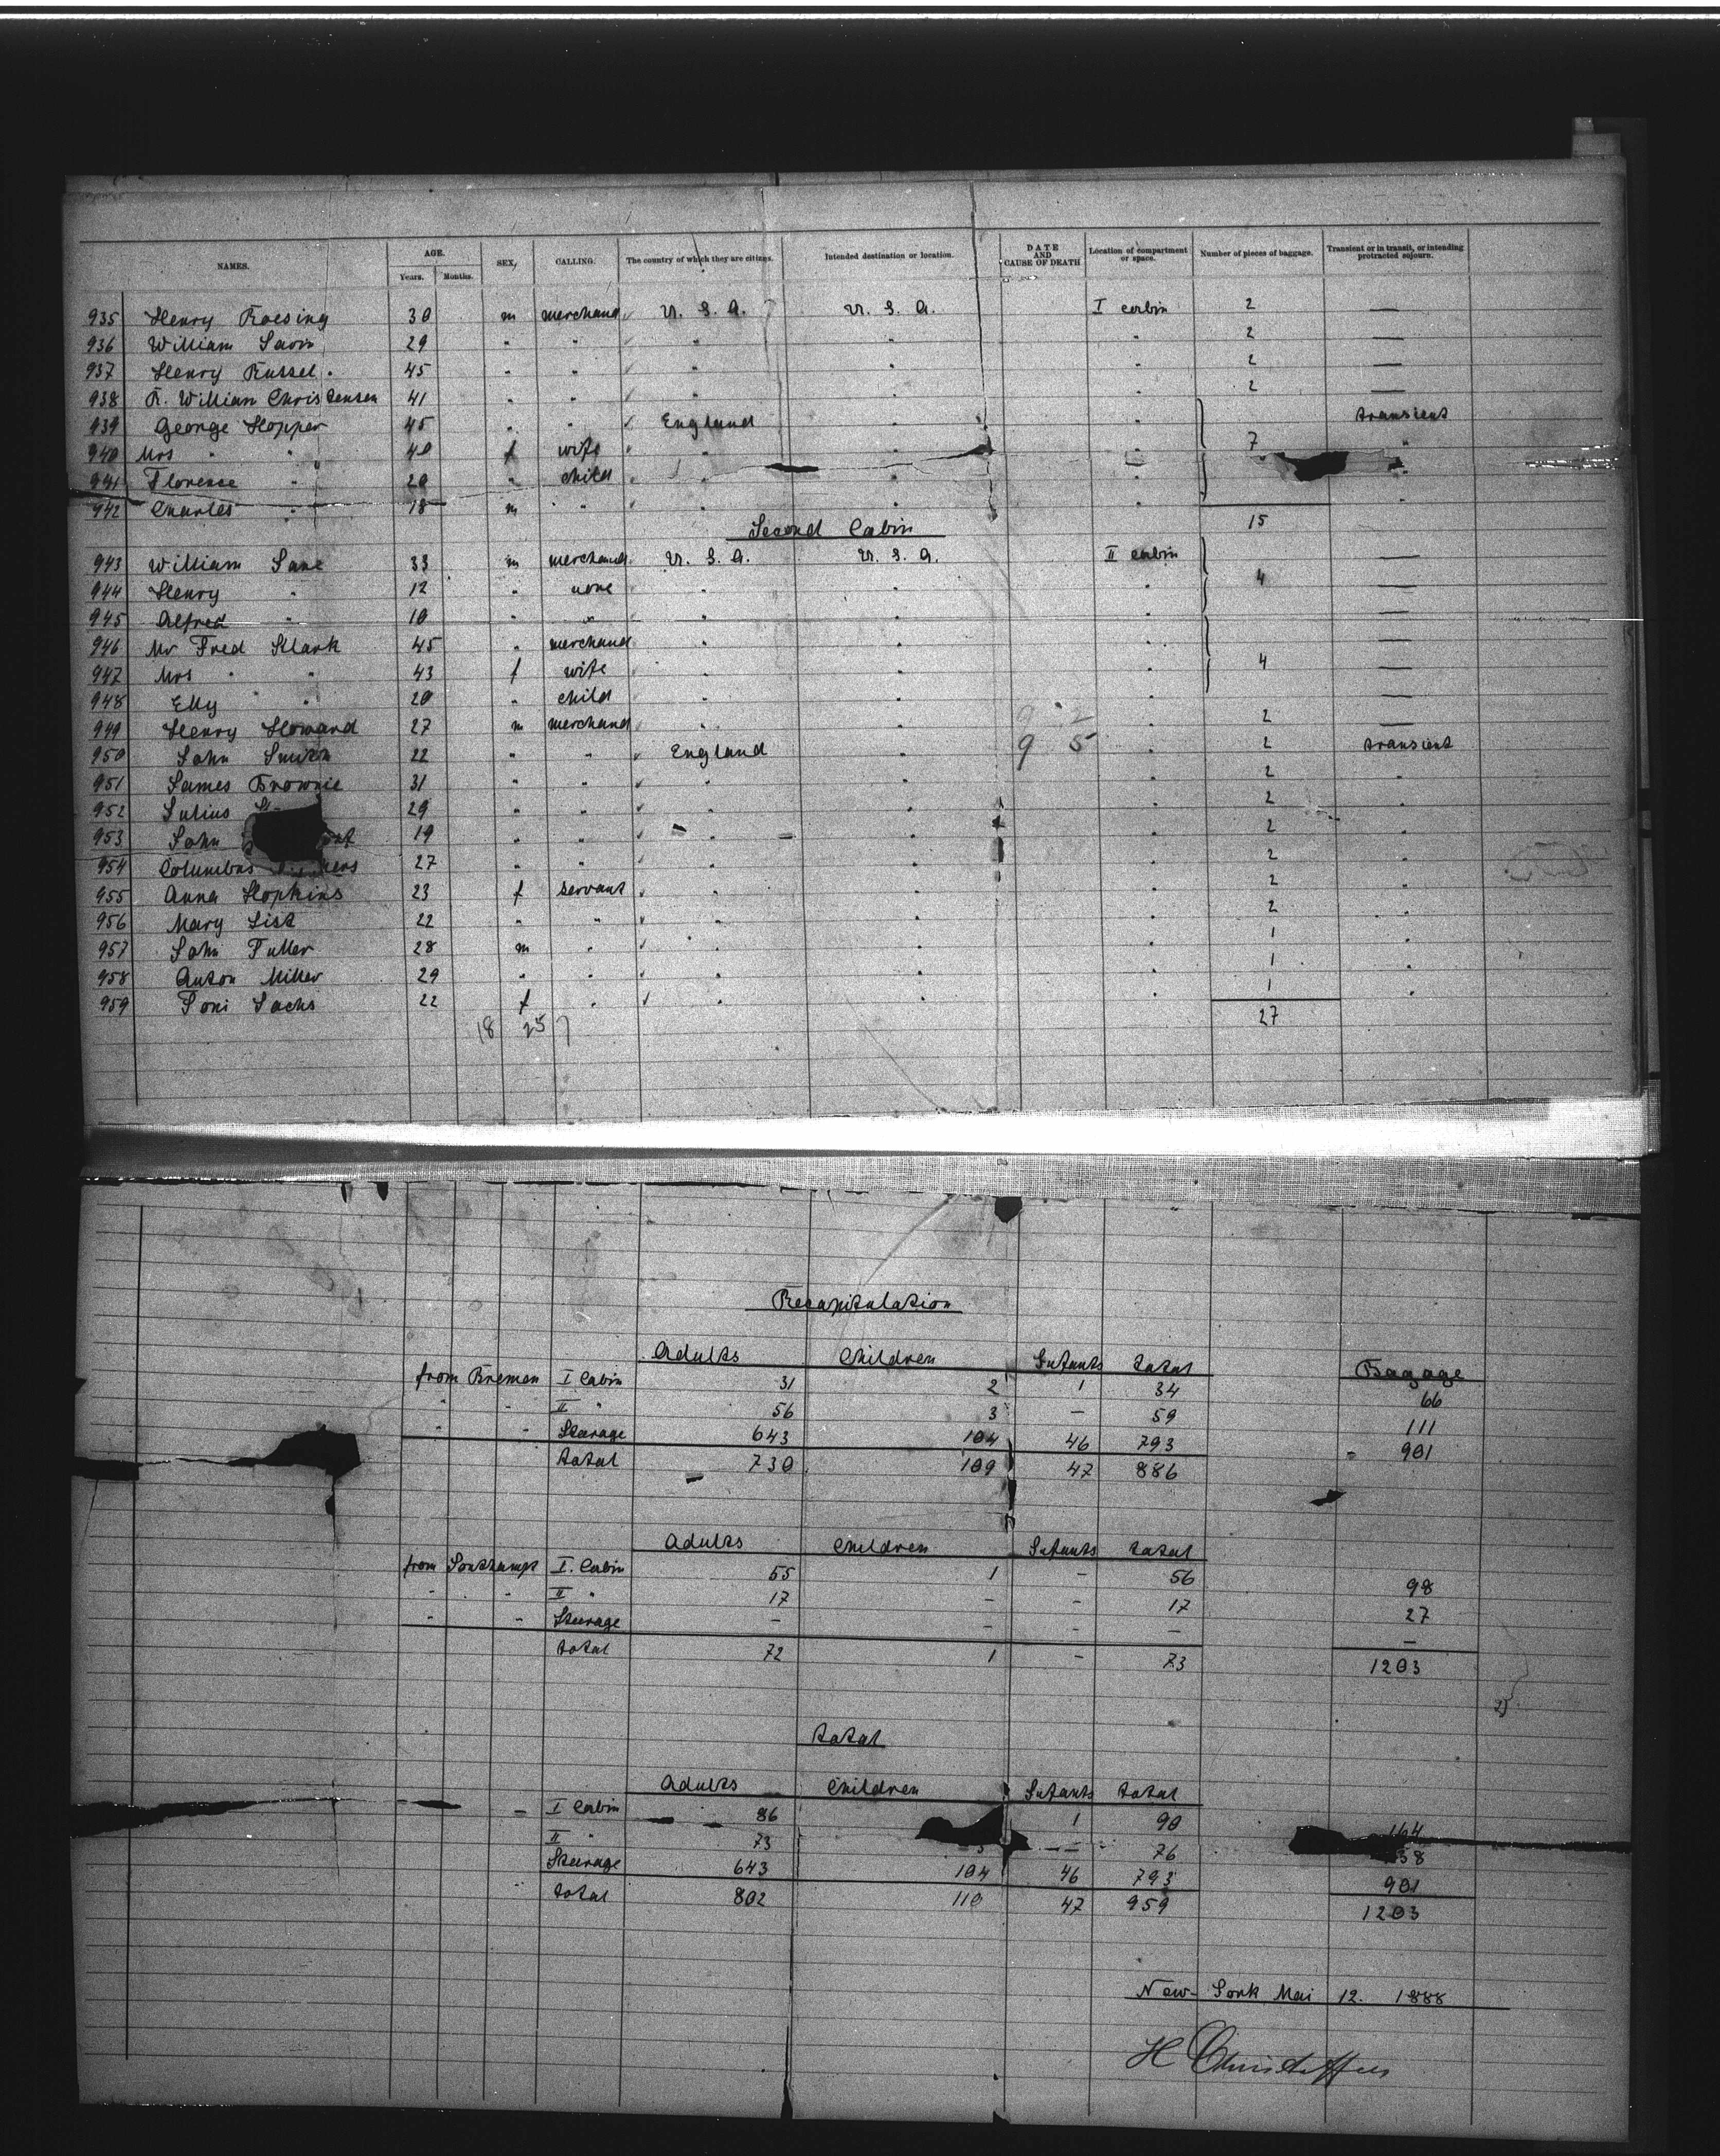 NAMES. AGE. SEX, CALLING. The country of which they are citizens. Intended destination or location. DATE AND CAUSE OF DEATH Location of compartment or space. Number of pieces of baggage. Transient or in transit, or intending protracted sojourn.
Years. Months.
935 Henry Roesing 30 m merchand U. S. A. U. S. A. I cabin 2 —
936 William 29 " " " " " 2 —
937 Henry Russel. 45 " " " " " 2 —
938 R. William Christensen 41 " " " " " 2 —
939 George Hopper 45 " " England " " transient
940 Mrs " " 40 f wife " " " 7 "
941 Florence " 20 " child " " " "
942 Charles " 18 m " " " " "
Second Cabin 15
943 William Lane 33 m merchand U. S. A. U. S. A. II cabin —
944 Henry " 12 " none " " " 4 —
945 Alfred " 10 " " " " " —
946 Mr Fred Klark 45 " merchand " " " —
947 Mrs " " 43 f wife " " " 4 —
948 Elly " " 20 " child " " " —
949 Henry Howard 27 m merchand " " 9 2 " 2 —
950 John Smith 22 " " England " 9 5 " 2 transient
951 James Brownie 31 " " " " " 2 "
952 Julius 29 " " " " " 2 "
953 John 19 " " " " " 2 "
954 Columbus 27 " " " " " 2 "
955 Anna Hopkins 23 f servant " " " 2 "
956 Mary List 22 " " " " " 2 "
957 John Fuller 28 m " " " " 1 "
958 Anton Miller 29 " " " " " 1 "
959 Toni Sachs 22 f " " " " 1 "
18 25 7 27
Recapitulation
Adults Children Infants total Bagage
from Bremen I Cabin 31 2 1 34 66
" " II " 56 3 — 59 111
" " Steerage 643 104 46 793 901
total 730 109 47 886
Adults Children Infants total
from Southampt I. Cabin 55 1 - 56 98
" " II " 17 - - 17 27
" " Steerage - - - - -
total 72 1 - 73 1203
total
Adults Children Infants total
I Cabin 86 1 90 164
II " 73 3 — 76 138
Steerage 643 104 46 793 901
total 802 110 47 959 1203
New-York Mai 12. 1888
H Christoffers